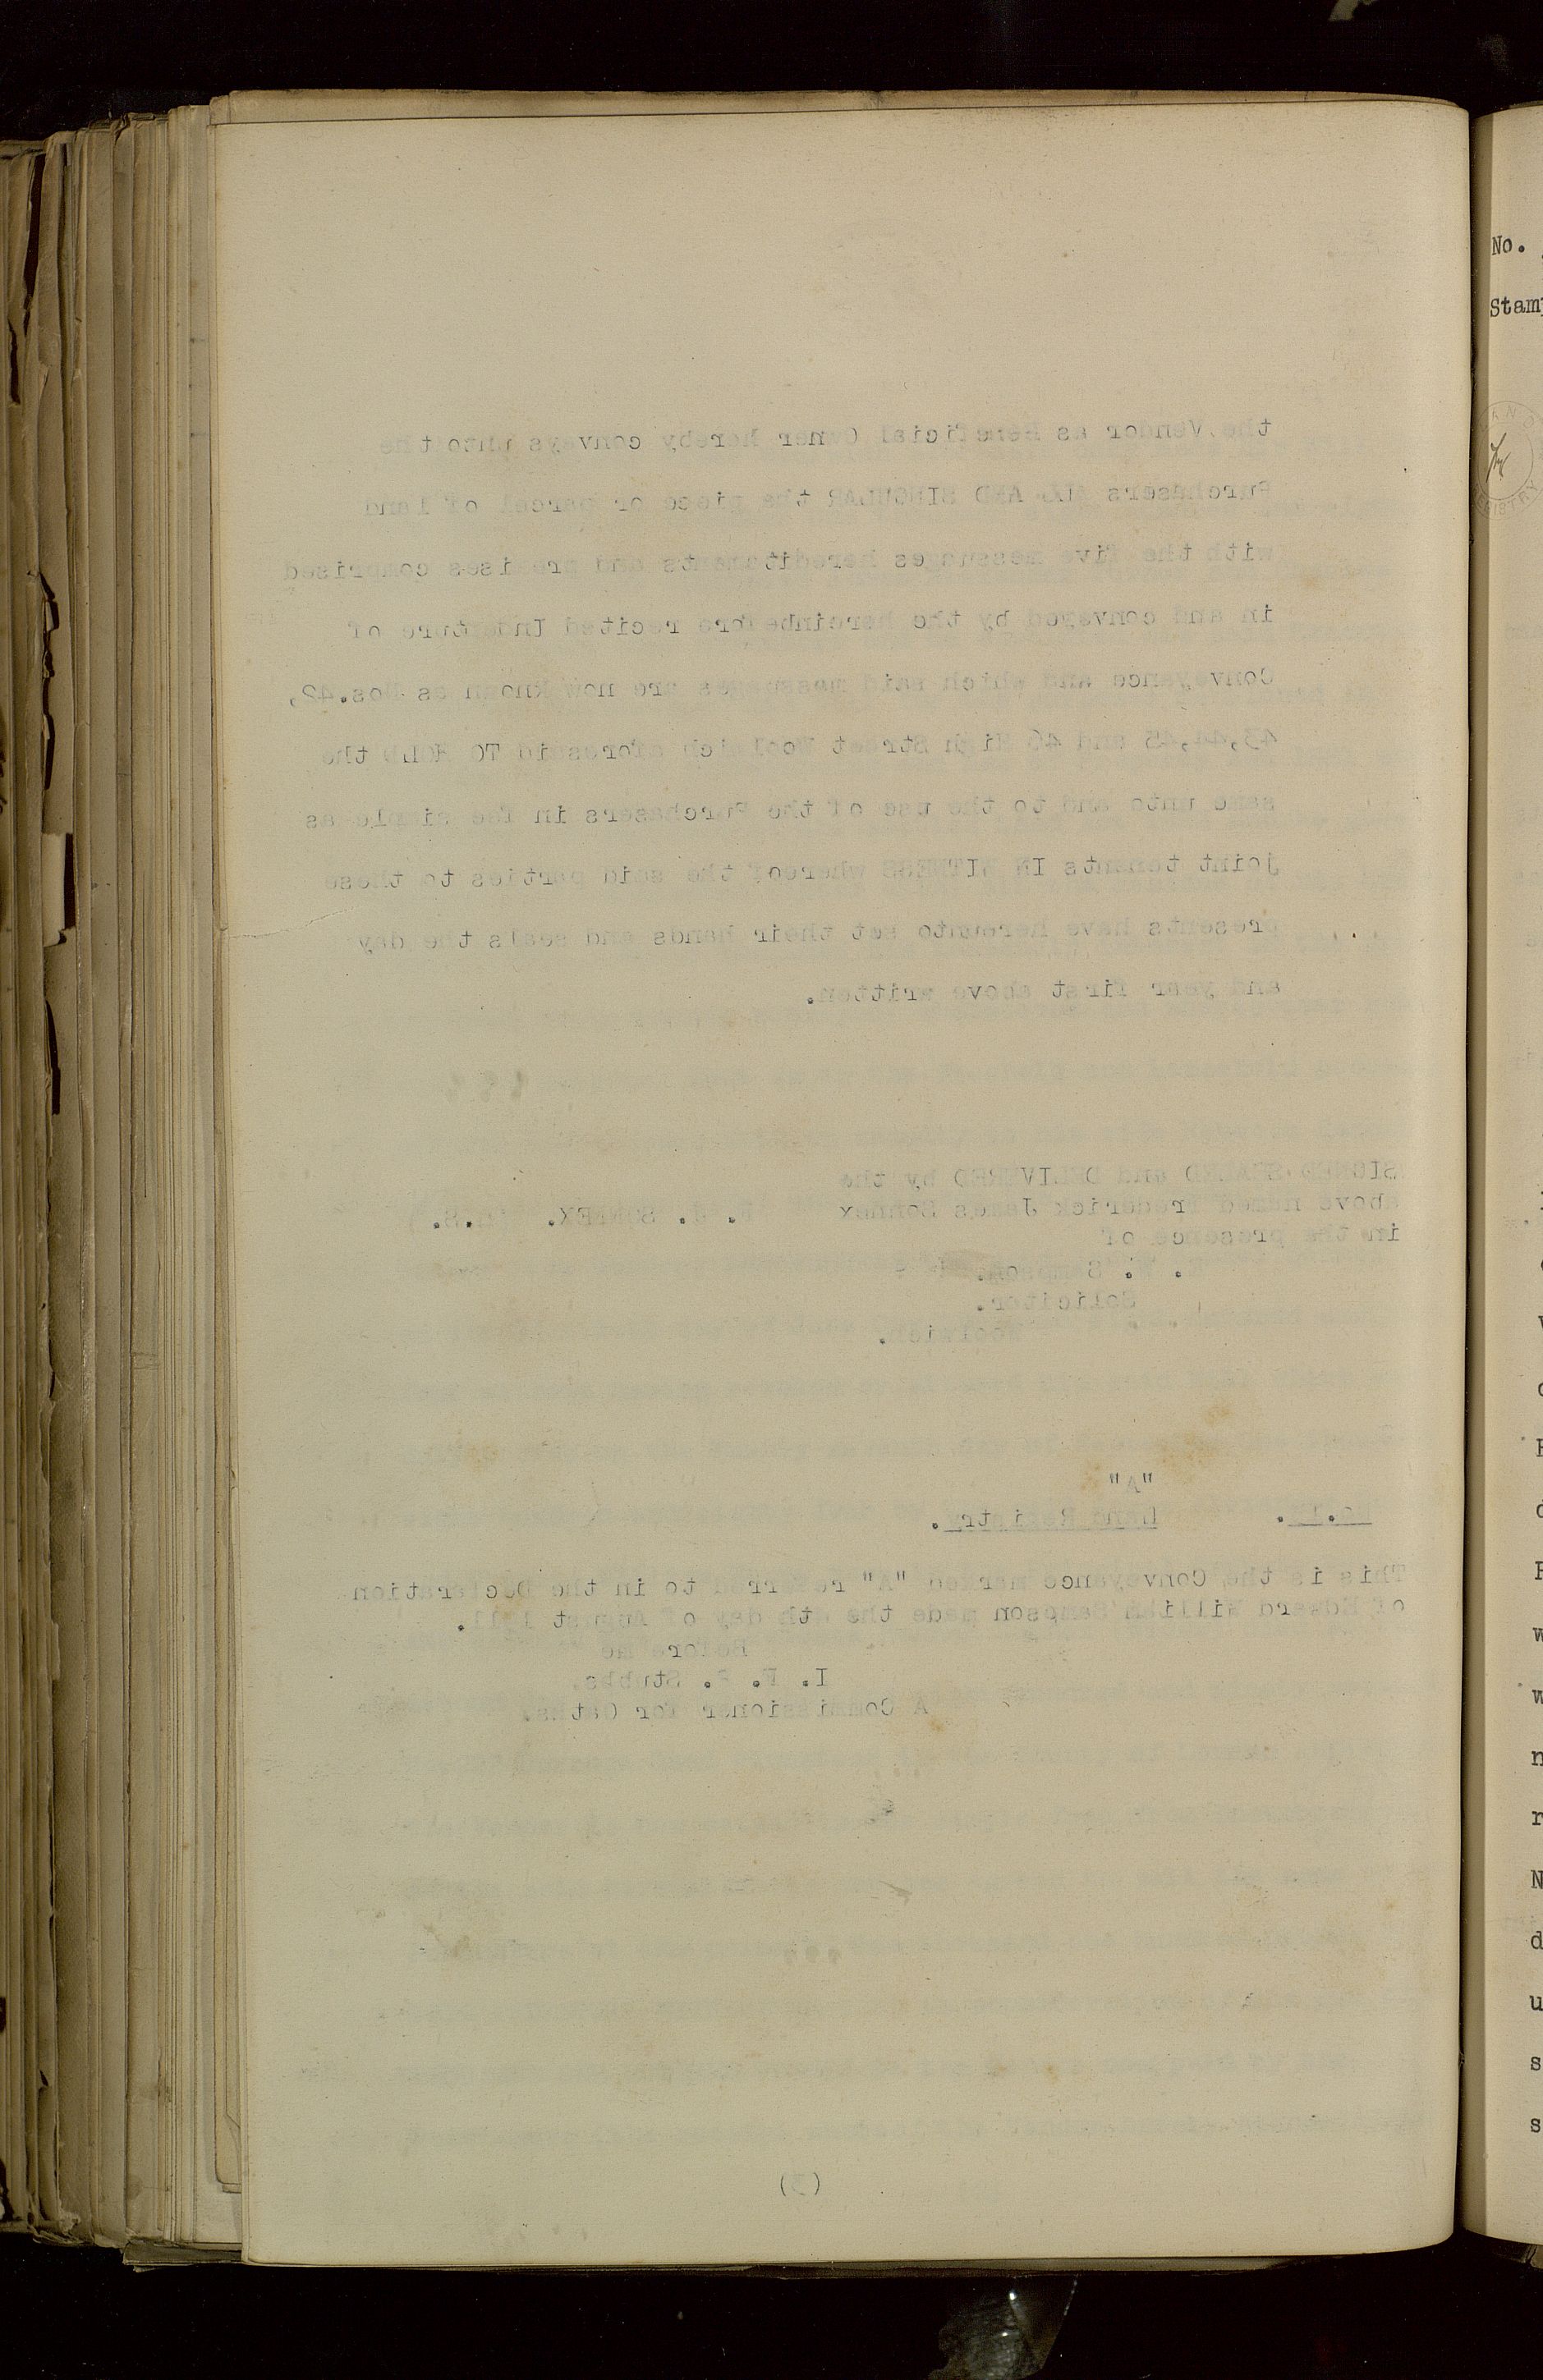 the Vendor as Beneficial Owner hereby conveys unto the
Purchasers ALL AND SINGULAR the piece or parcel of land
with the five messuages hereditaments and premises comprised
in and conveyed by the hereinbefore recited Indenture of
Conveyance and which said messuages are now known as Nos.42,
43,44,45 and 46 High Street Woolwich aforesaid TO HOLD the
same unto and to the use of the Purchasers in fee simple as
joint tenants IN WITNESS whereof the said parties to these
presents have hereunto set their hands and seals the day
and year first above written.
SIGNED SEALED and DELIVERED by the
above named Frederick James Sonnex
in the presence of
F. J. SONNEX. (L.S.)
Sampson.
Solicitor.
Woolwich.
"A"
Land Registry.
This is the Conveyance marked "A" referred to in the Declaration
of Edward William Sampson made the day of August
Before me
Stubbs.
A Commissioner for Oaths.
(3)
No.